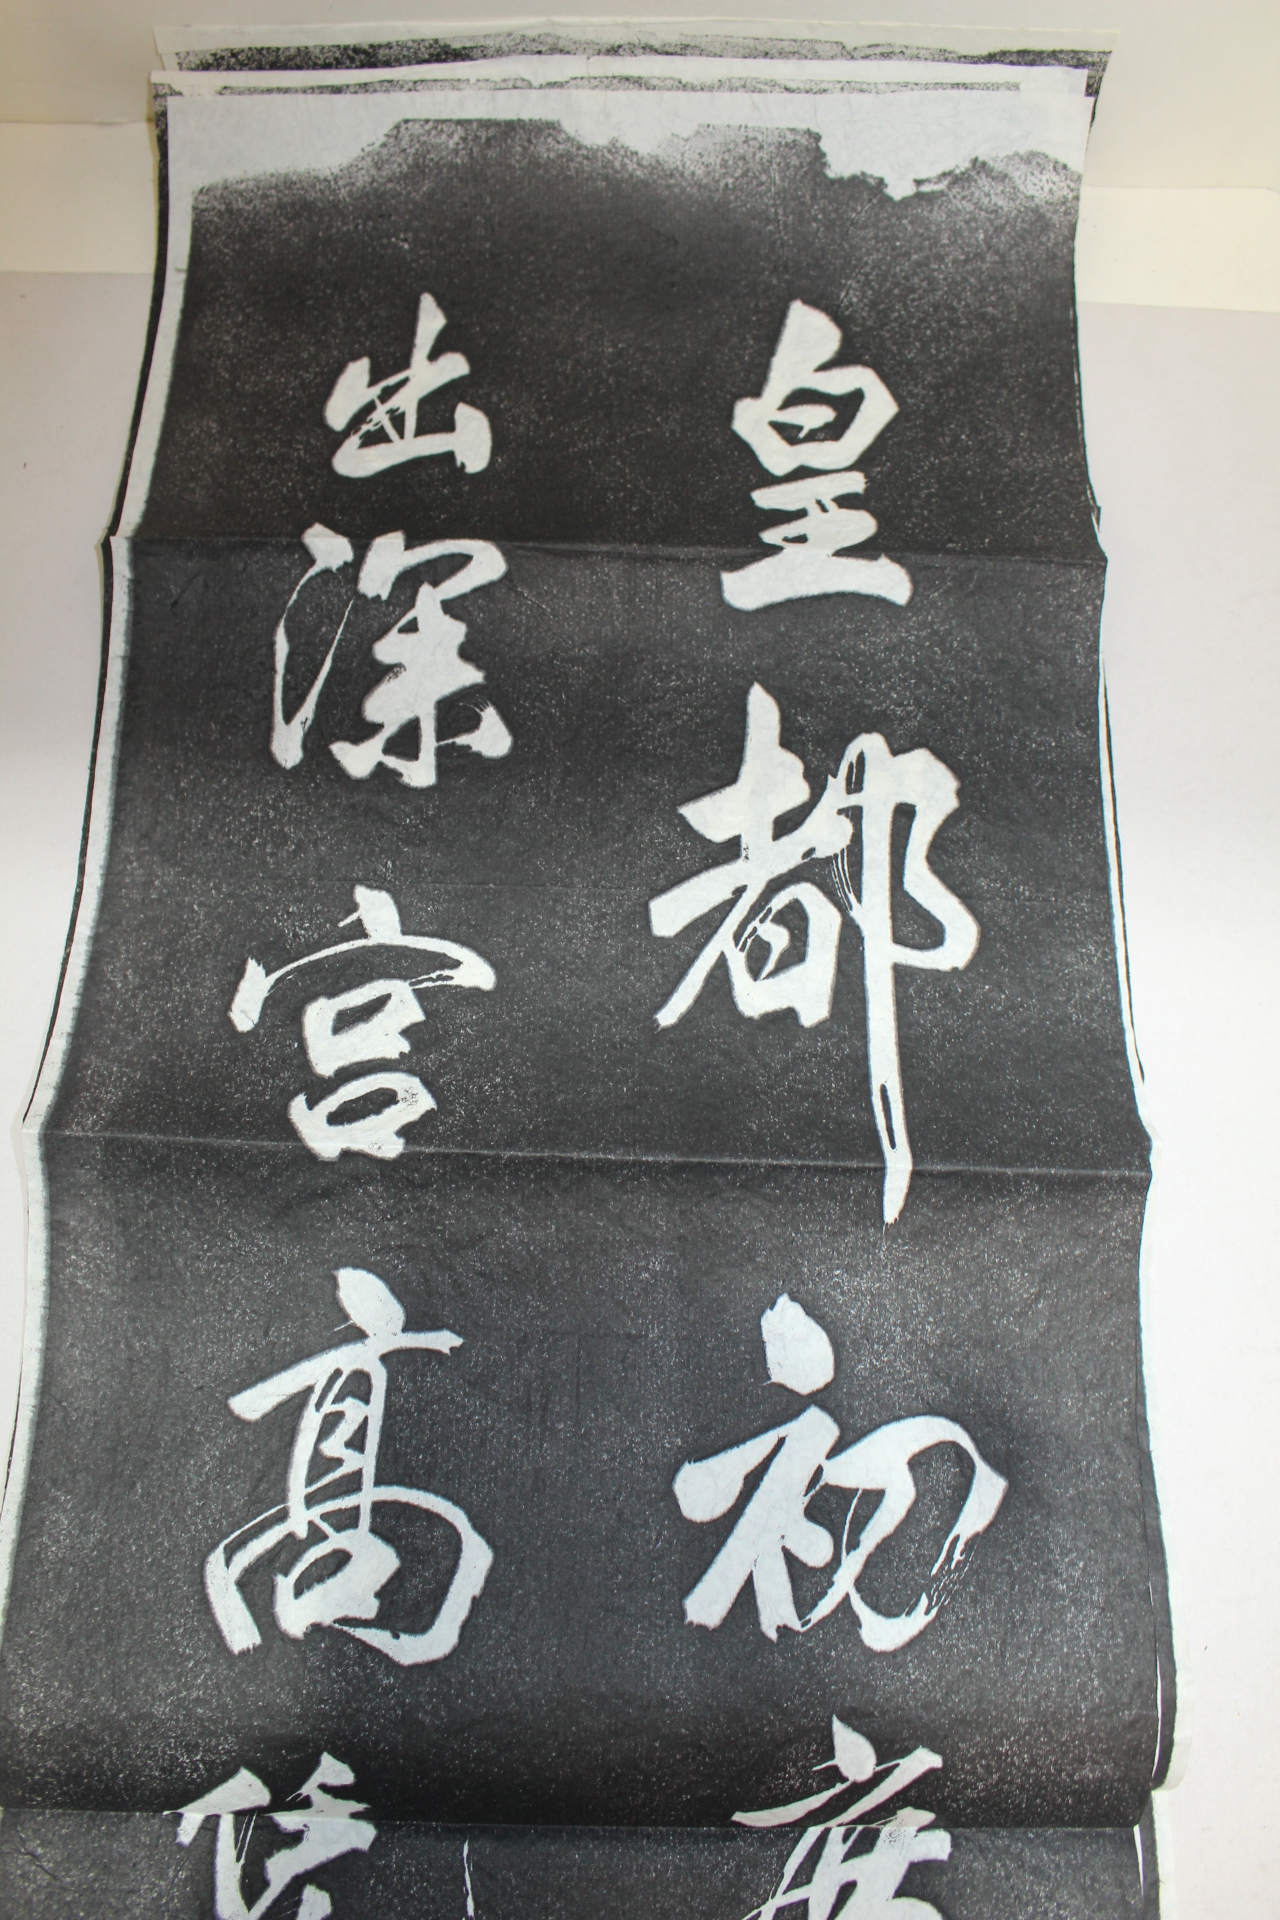 皇都初度
出深宮高